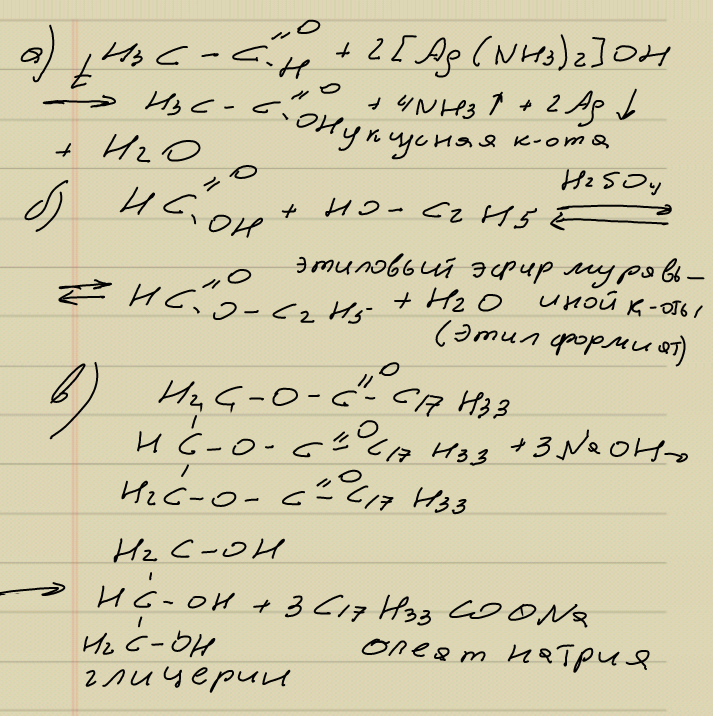 а) H3C - C =O -H + 2[Ag(NH3)2]OH
t → H3C - C =O -OH + 4NH3↑ + 2Ag↓
уксусная к-ота
+ H2O
б) HC =O -OH + HO - C2H5 ⇌ H2SO4
этиловый эфир муравь-
⇌ HC =O -O - C2H5 + H2O иной к-оты
(этил формиат)
в) H2C - O - C =O - C17H33
HC - O - C =O - C17H33 + 3NaOH →
H2C - O - C =O - C17H33
H2C - OH
→ HC - OH + 3C17H33COONa
H2C - OH олеат натрия
глицерин